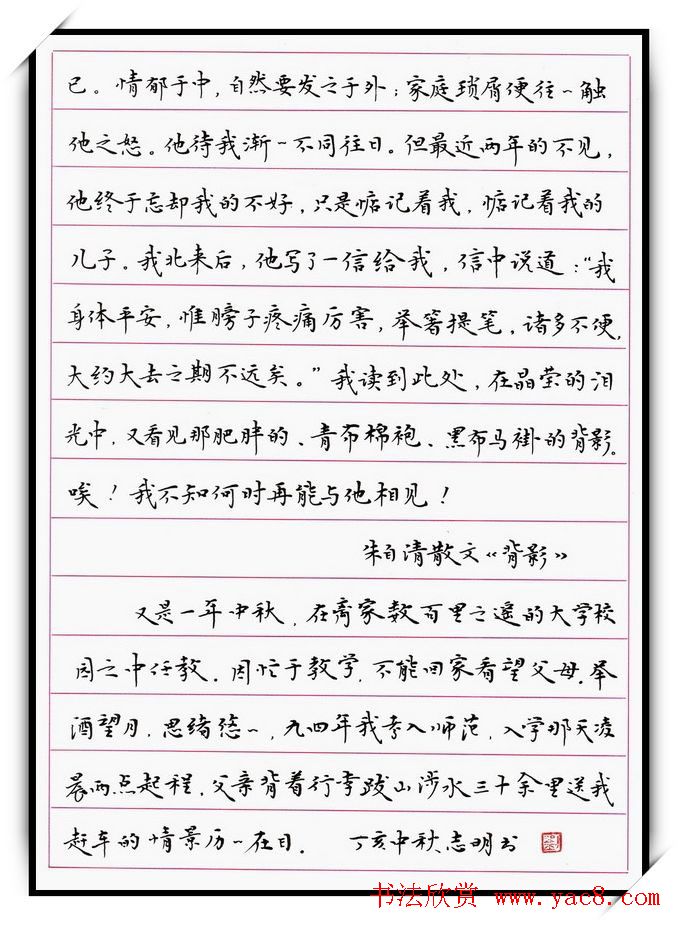 已。情郁于中，自然要发之于外；家庭琐屑便往一触
他之怒。他待我渐一不同往日。但最近两年的不见，
他终于忘却我的不好，只是惦记着我，惦记着我的
儿子。我北来后，他写了一信给我，信中说道：“我
身体平安，惟膀子疼痛厉害，举箸提笔，诸多不便，
大约大去之期不远矣。”我读到此处，在晶莹的泪
光中，又看见那肥胖的、青布棉袍、黑布马褂的背影。
唉！我不知何时再能与他相见！
朱自清散文《背影》
又是一年中秋，在离家数百里之遥的大学校
园之中任教。因忙于教学，不能回家看望父母。举
酒望月，思绪悠一，九四年我考入师范，入学那天凌
晨两点起程，父亲背着行李跋山涉水三十余里送我
赶车的情景历一在目。 丁亥中秋志明书
书法欣赏 www.yac8.com